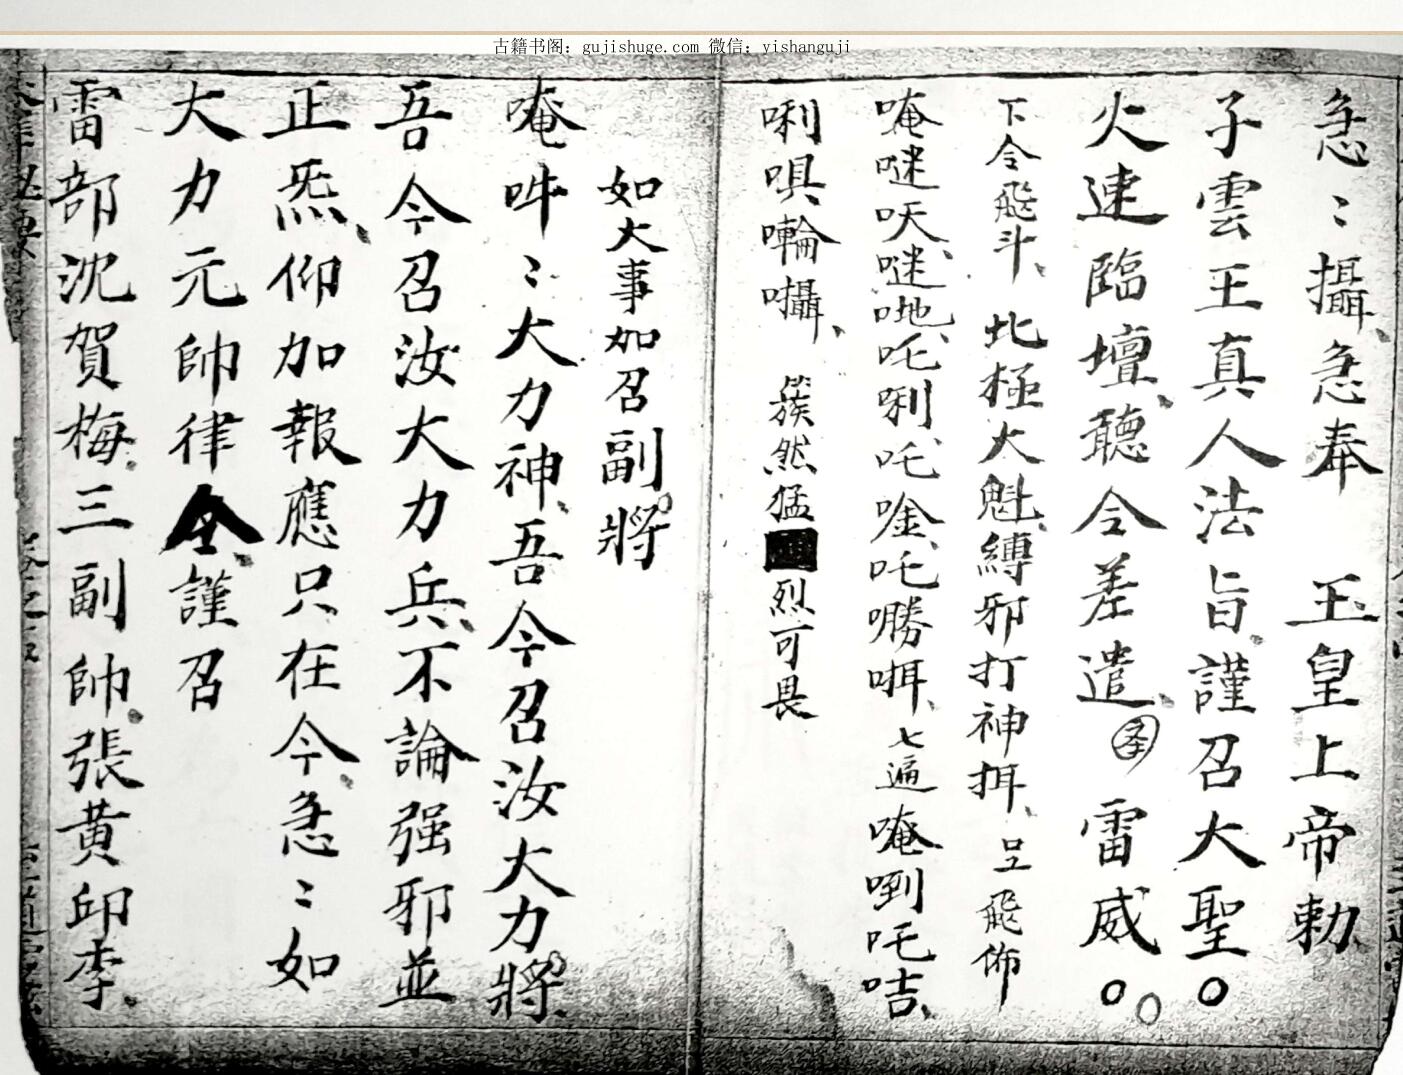 古籍书阁：gujishuge.com 微信：yishanguji
急〻攝、急奉 玉皇上帝勅
子雲王真人法旨、謹召大聖〇
火速臨壇、聽令差遣、雷威〇〇
下令飛斗、北極大魁、縛邪打神挕、飛佈
唵㖷㕭、㖷吔、吒唎、吒唫、吒𠾐咡、七遍唵㖔吒咭、
唎唄㘓囁、簇然猛烈可畏
如大事如召副將
唵吽〻大力神、吾今召汝大力將、
吾今召汝大力兵、不論强邪並
正炁、仰加報應只在今、急〻如
大力元帥律令、謹召
雷部沈賀梅、三副帥、張黃邱李、